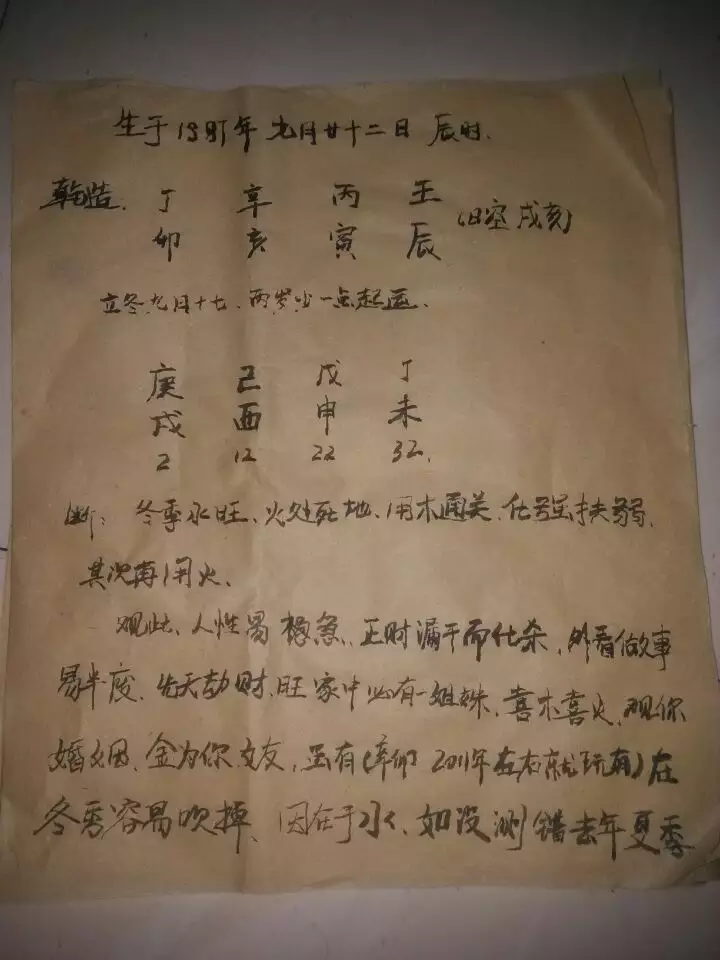 生于1987年 九月廿十二日 辰时.
乾造. 丁 辛 丙 壬 (日空戌亥)
卯 亥 寅 辰
立冬九月十七、两岁少一点起运.
庚 己 戊 丁
戌 酉 申 未
2 12 22 32.
断: 冬季水旺、火处死地、用木通关、化强扶弱、
其次再用火、
观此、人性易 急、正财 而化杀、外看做事
易半废、先天劫财、旺家中必有一姐妹、喜木喜火、观你
婚姻、金为你女友、虽有(辛卯 2011年左右就玩有)在
冬季容易吹掉、因在于水、如没测错去年夏季